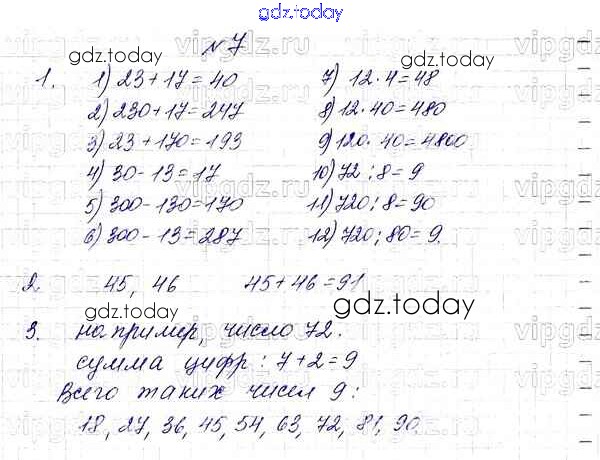 gdz.today
№ 7
1. 1) 23+17=40
2) 230+17=247
3) 23+170=193
4) 30-13=17
5) 300-130=170
6) 300-13=287
7) 12·4=48
8) 12·40=480
9) 120·40=4800
10) 72:8=9
11) 720:8=90
12) 720:80=9.
2. 45, 46 45+46=91
3. например, число 72.
сумма цифр: 7+2=9
Всего таких чисел 9:
18, 27, 36, 45, 54, 63, 72, 81, 90.
gdz.today
gdz.today
gdz.today
gdz.today
gdz.today
gdz.today
vipgdz.ru
vipgdz.ru
vipgdz.ru
vipgdz.ru